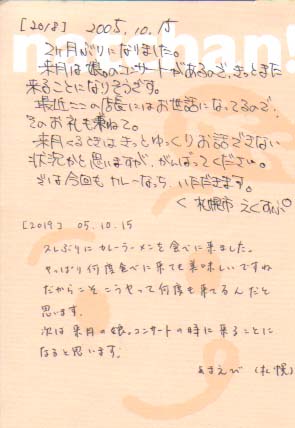 [2018] 2005.10.15
2ヶ月ぶりになりました。
来月は娘。のコンサートがあるので、きっとまた
来ることになりそうです。
最近ここの店長にはお世話になってるので、
そのお礼も兼ねて。
来月くるときはきっとゆっくりお話できない
状況かと思いますが、がんばってください。
では今回もカレーなっち、いただきます。
< 札幌市 えくすぷ°
[2019] 05.10.15
久しぶりにカレーラーメンを食べに来ました。
やっぱり何度食べに来ても美味しいですね
だからこそこうやって何度も来てるんだと
思います。
次は来月の娘。コンサートの時に来ることに
なると思います。
あすえび (札幌)